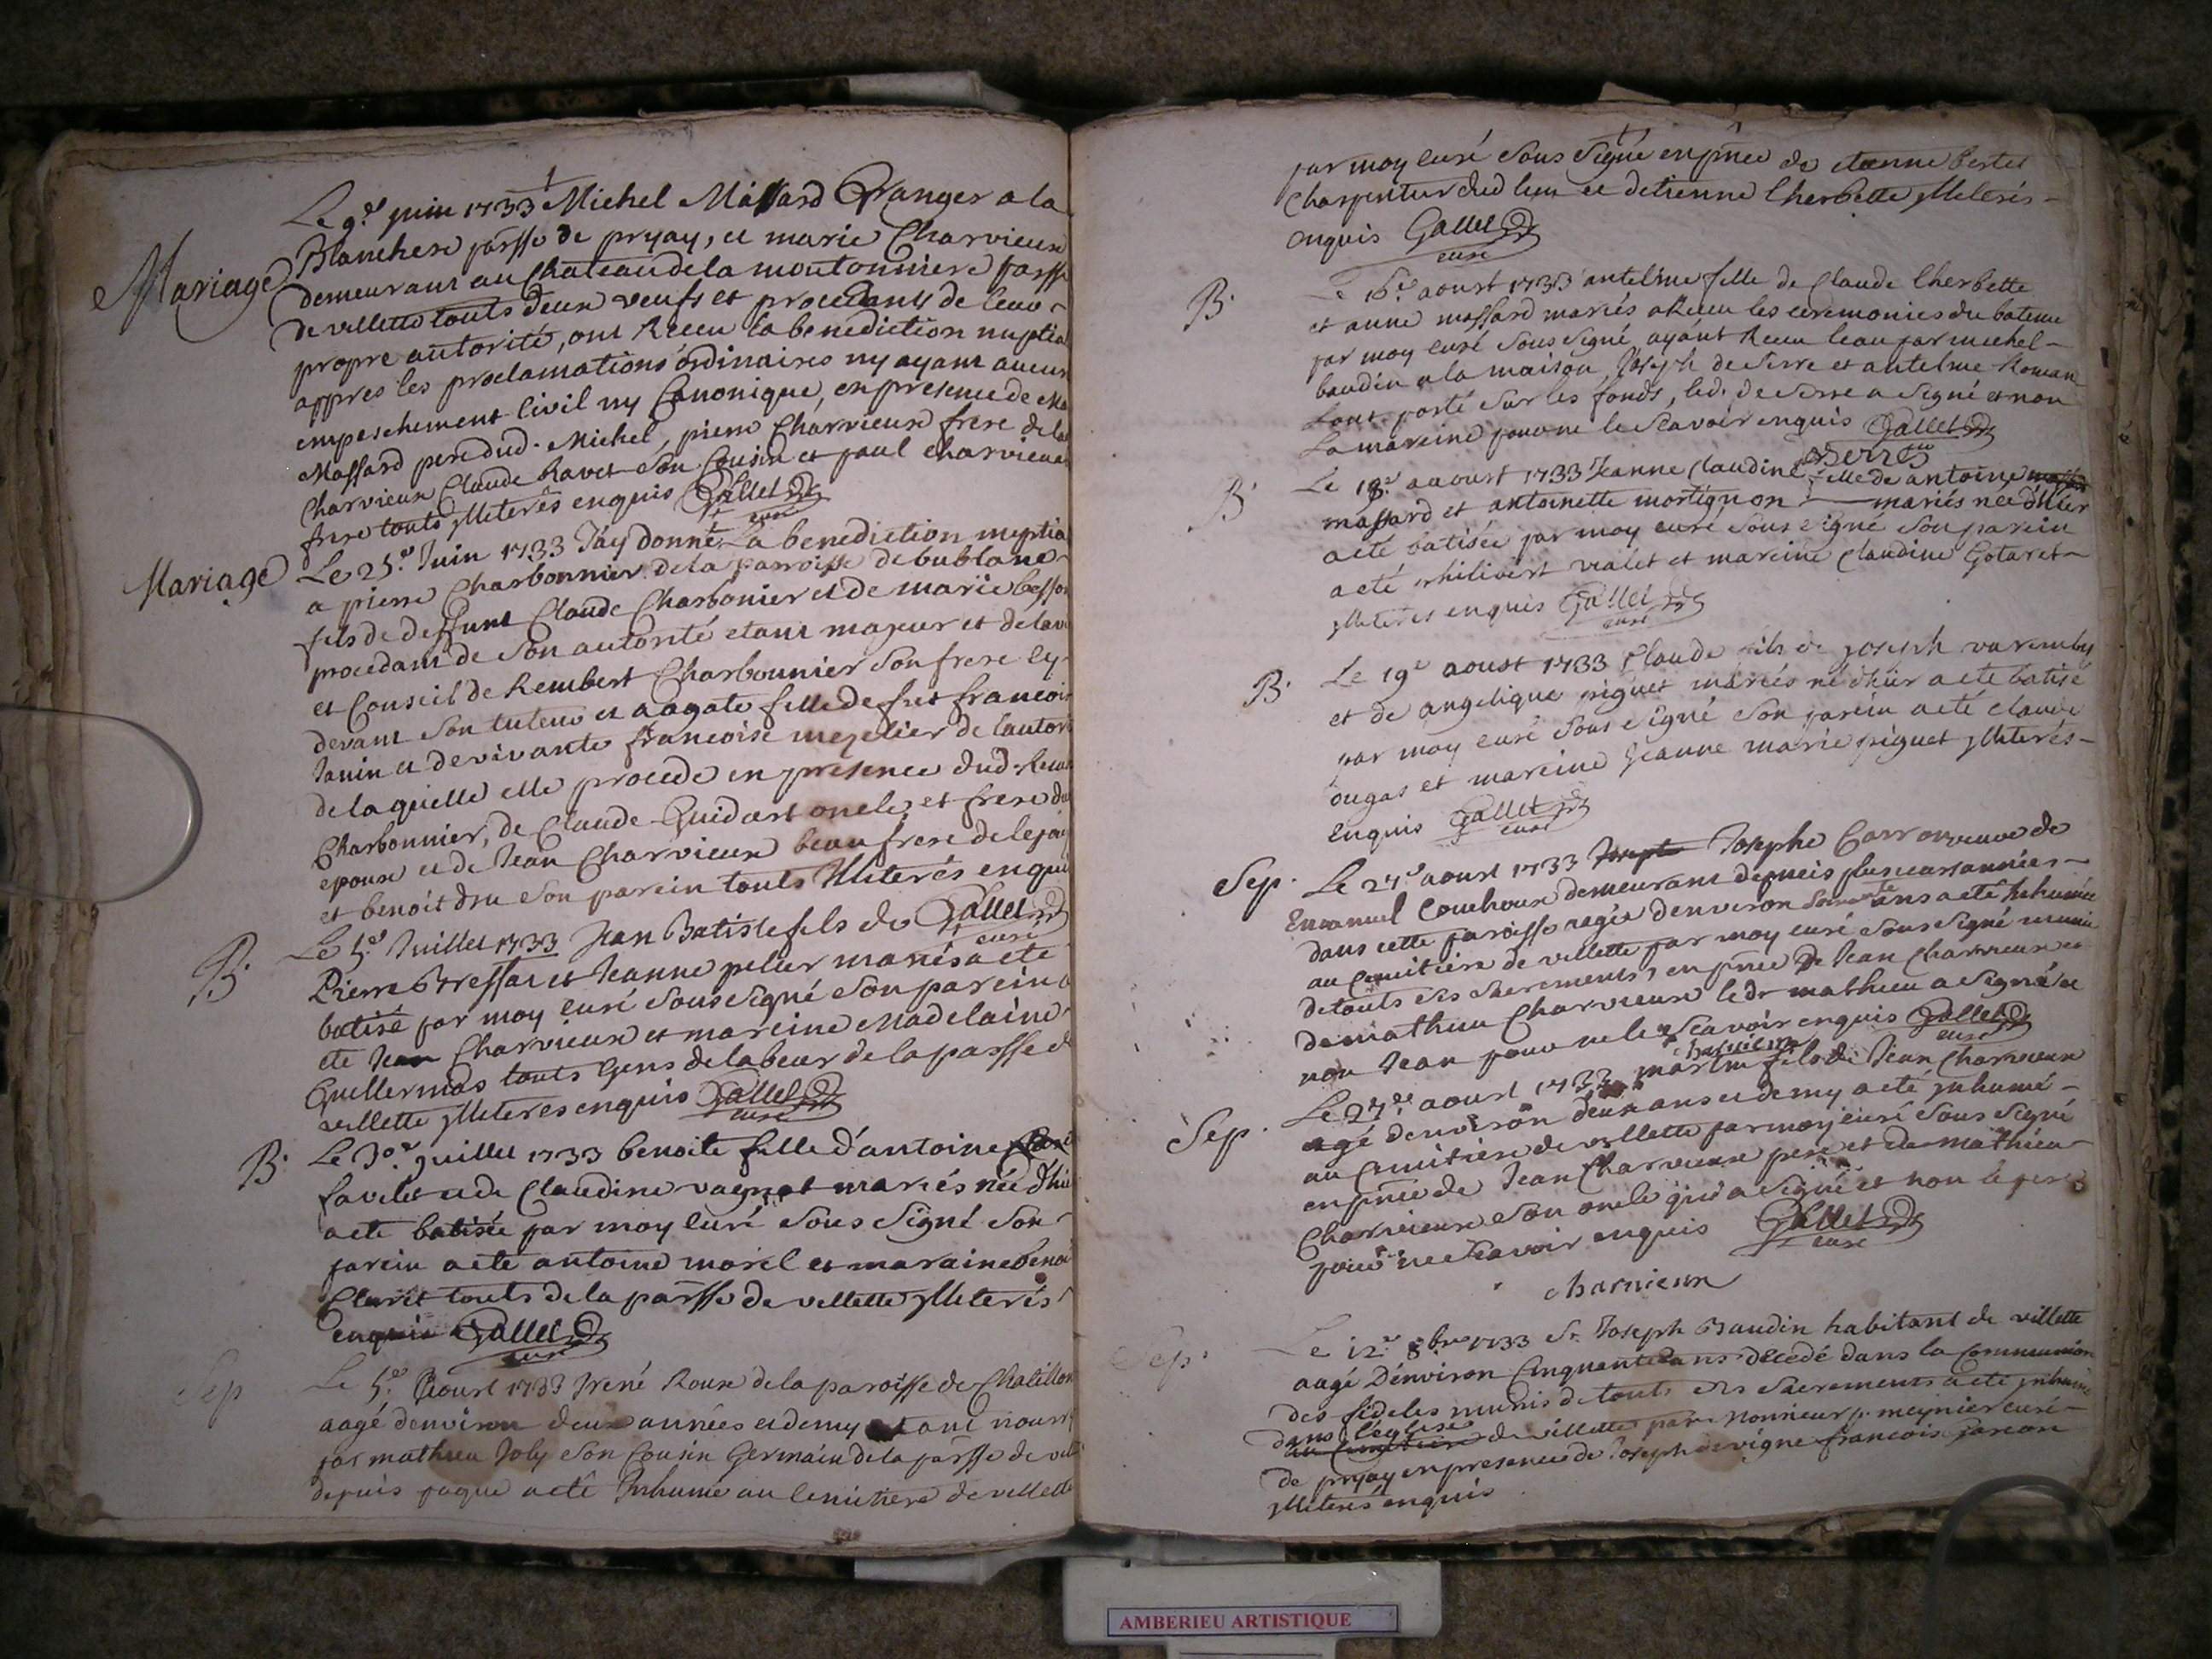 Le 9.e juin 1733 Michel Massard Granger a la
Mariage
Blanchere parsse de pryay, et marie Charvieux
demeurant au Chateau de la moutonniere parsse
de villette touts deux veufs et procedants de leur
propre autorité, ont Receu la benediction nuptia
appres les proclamations ordinaires ny ayant aucun
empeschement Civil ny Canonique, en presence de
Massard pere dud. Michel, pierre Charvieux frere de la
Charvieux Claude Ravet son Cousin et paul charvieux
frere touts illiterés enquis Gallet
curé
Mariage
Le 25.e Juin 1733 J'ay donné La benediction nuptia
a pierre Charbonnier de la parroisse de bublane
fils de deffunt Claude Charbonier et de marie besson
procedant de Son autorité etant majeur et de lavi
et Conseil de Rembert Charbonnier Son frere cy
devant Son tuteur et a agate fille de fut francois
Janin et de vivante francoise mezelier de lautori
de laquelle elle procede en presence dud. Rem
Charbonnier, de Claude Guidart oncle et frere de
epoux et de Jean Charvieux beau frere de
et benoit dru son parein touts illiterés enquis
Gallet
curé
B.
Le 5.e Juillet 1733 Jean Batiste fils de
Pierre Bressat et Jeanne peller mariés a eté
batisé par moy curé Soussigné Son parein a
eté Jean Charvieux et mareine Madelaine
Guillermas touts Gens de labeur de la parsse de
villette illiteres enquis Gallet
curé
B.
Le 30.e Juillet 1733 benoite fille d'antoine
favelet et de Claudine vagnot mariés née d'hier
a eté batisée par moy curé Sous Signé Son
parein a eté antoine morel et maraine benoi
Claret touts de la parsse de villette illiterés
enquis Gallet
curé
Sep
Le 5.e Aoust 1733 René Roux de la paroisse de Chatillon
aagé denviron deux années et demy etant nourry
par mathieu Joly son Cousin Germain de la parsse de vill
depuis paque a eté Inhumé au Cemitiere de villette
par moy curé Sous Signé en pnce de etienne bertet
Charpentier dud lieu et detienne Cherbette illiterés
enquis Gallet
curé
B.
Le 16.e aoust 1733 antelme fille de Claude Cherbette
et anne massard mariés a Receu les ceremonies du bateme
par moy curé Sous Signé, ayant Receu leau par michel
baudin a la maison, Joseph de Serre et antelme Roman
Lont porté Sur les fonds, led. de Serre a Signé et non
La mareine pour ne le Scavoir enquis Gallet
curé
Deserre
B.
Le 18.e aoust 1733 Jeanne Claudine fille de antoine
massard et antoinette mortignon mariés née d'hier
a eté batisée par moy curé Sous Signé Son parein
a eté philibert vialet et mareine Claudine Gotaret
illiteres enquis Gallet
curé
B.
Le 19.e aoust 1733 Claude fils de Joseph varemby
et de angelique piguet mariés né d'hier a eté batisé
par moy curé Sous Signé Son parein a eté claude
ougas et mareine Jeanne marie piguet illiterés
enquis Gallet
curé
Sep.
Le 27.e aoust 1733 Joseph Josephe Carron veuve de
Emanuel Couchoux demeurant depuis plusieurs années
dans cette paroisse aagée denviron Soixante ans a eté Inhumée
au Cemitiere de villette par moy curé Sous Signé munie
de touts Ses Sacrements, en pnce de Jean Charvieux et
de mathieu Charvieux led. mathieu a Signé et
non Jean pour ne le Scavoir enquis Gallet
curé
charvieux
Sep.
Le 27.e aoust 1733 martin fils de Jean Charvieux
agé denviron deux ans et demy a eté Inhumé
au Cemitiere de villette par moy curé Sous Signé
en pnce de Jean Charvieux pere et de mathieu
Charvieux son oncle qui a Signé et non le pere
pour ne Scavoir enquis Gallet
curé
charvieux
Sep.
Le 12.e 8bre 1733 Sr. Joseph Baudin habitant de villette
aagé D'environ Cinquante ans decedé dans la Communion
des fideles munis de touts Ses Sacrements a eté inhumé
dans l'église
au Cemitiere de villette par Monsieur meynier curé
de pryay en presence de Joseph devigne francois jarcon
illiterés enquis
AMBERIEU ARTISTIQUE